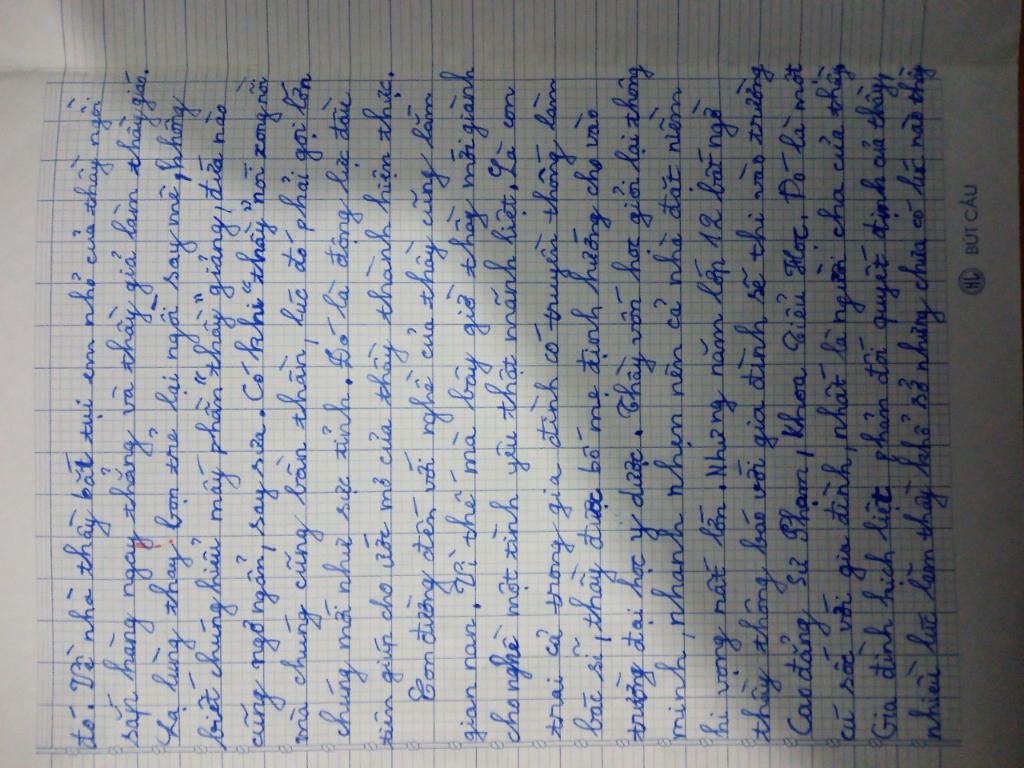 đó. Về nhà thầy bắt tụi em nhỏ của thầy ngồi
sắp hàng ngay thẳng và thầy giả làm thầy giáo.
Lạ lùng thay, bọn trẻ lại ngồi say mê, không
biết chúng hiểu mấy phần "thầy" giảng, đứa nào
cũng ngơ ngẩn, say sưa. Có khi "thầy" nói xong rồi
mà chúng cũng bần thần, lúc đó phải gọi lớn
chúng mới như sực tỉnh. Đó là động lực đầu
tiên giúp cho ước mơ của thầy thành hiện thực.
Con đường đến với nghề của thầy cũng lắm
gian nan. Vì thế mà bây giờ thầy mới giành
cho nghề một tình yêu thật mãnh liệt. Là con
trai cả trong gia đình có truyền thống làm
bác sĩ, thầy được bố mẹ định hướng cho vào
trường đại học y dược. Thầy vốn học giỏi lại thông
minh, nhanh nhẹn nên cả nhà đặt niềm
hi vọng rất lớn. Nhưng năm lớp 12 bất ngờ
thầy thông báo với gia đình sẽ thi vào trường
Cao đẳng Sư Phạm, khoa Tiểu Học. Đó là một
cú sốc với gia đình, nhất là người cha của thầy.
Gia đình kịch liệt phản đối quyết định của thầy,
nhiều lúc làm thầy khổ sở nhưng chưa có lúc nào thầy
BÚT CÂU